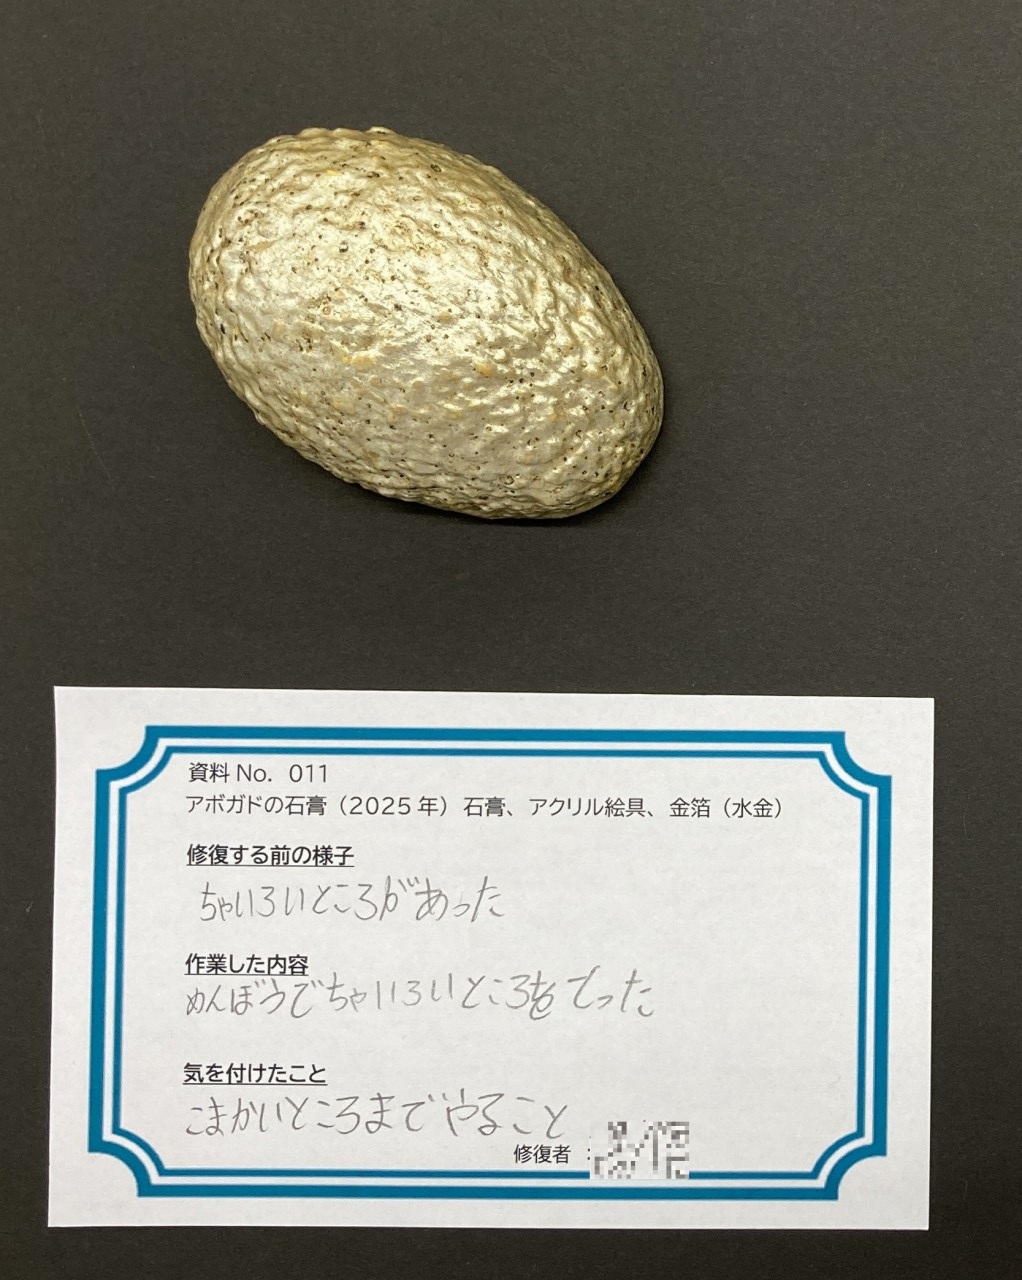 資料 No. 011
アボガドの石膏（2025 年）石膏、アクリル絵具、金箔（水金）
修復する前の様子
ちゃいろいところがあった
作業した内容
めんぼうでちゃいろいところをてった
気を付けたこと
こまかいところまでやること
修復者：